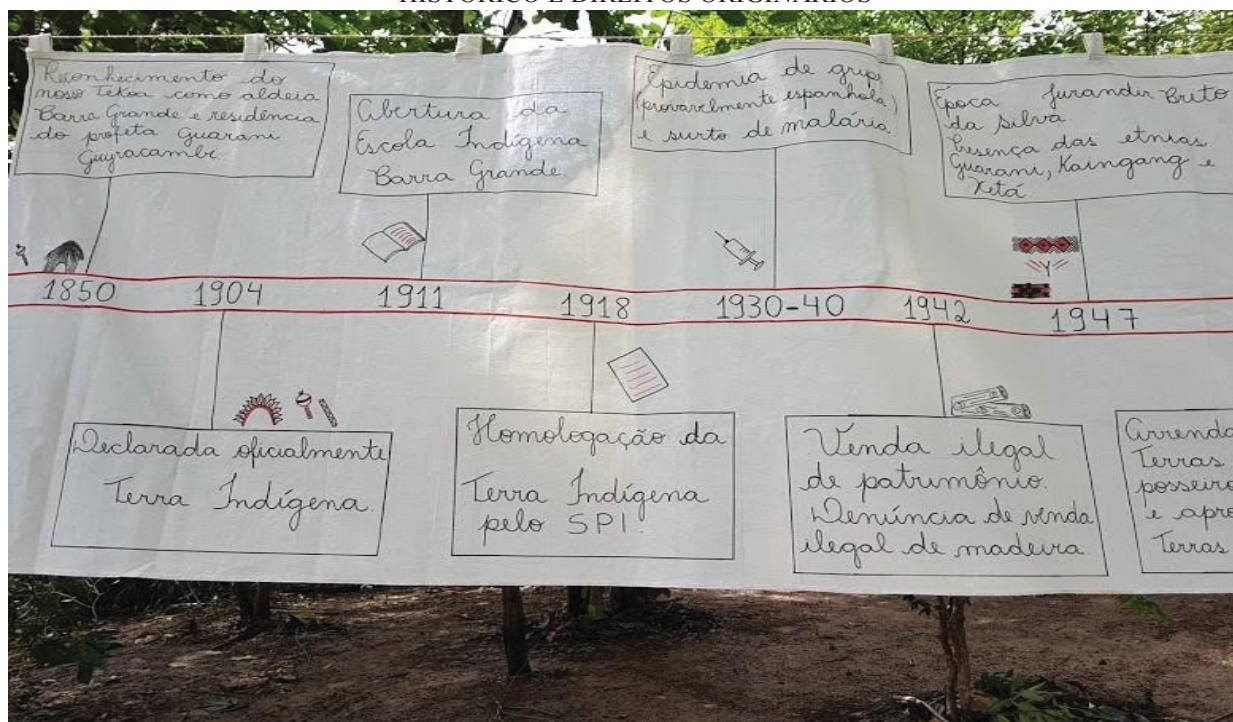 HISTÓRICO E DIREITOS ORIGINÁRIOS
Reconhecimento do
nosso Tekoa como aldeia
Barra Grande e residência
do profeta Guarani
Guyracambé
Abertura da
Escola Indígena
Barra Grande.
Epidemia de gripe
(provavelmente espanhola)
e surto de malária
Época Jurandir Brito
da Silva.
Presença das etnias
Guarani, Kaingang e
Xetá.
1850 1904 1911 1918 1930-40 1942 1947
Declarada oficialmente
Terra Indígena.
Homologação da
Terra Indígena
pelo SPI.
Venda ilegal
de patrimônio.
Denúncia de venda
ilegal de madeira
Terras
e
Terras